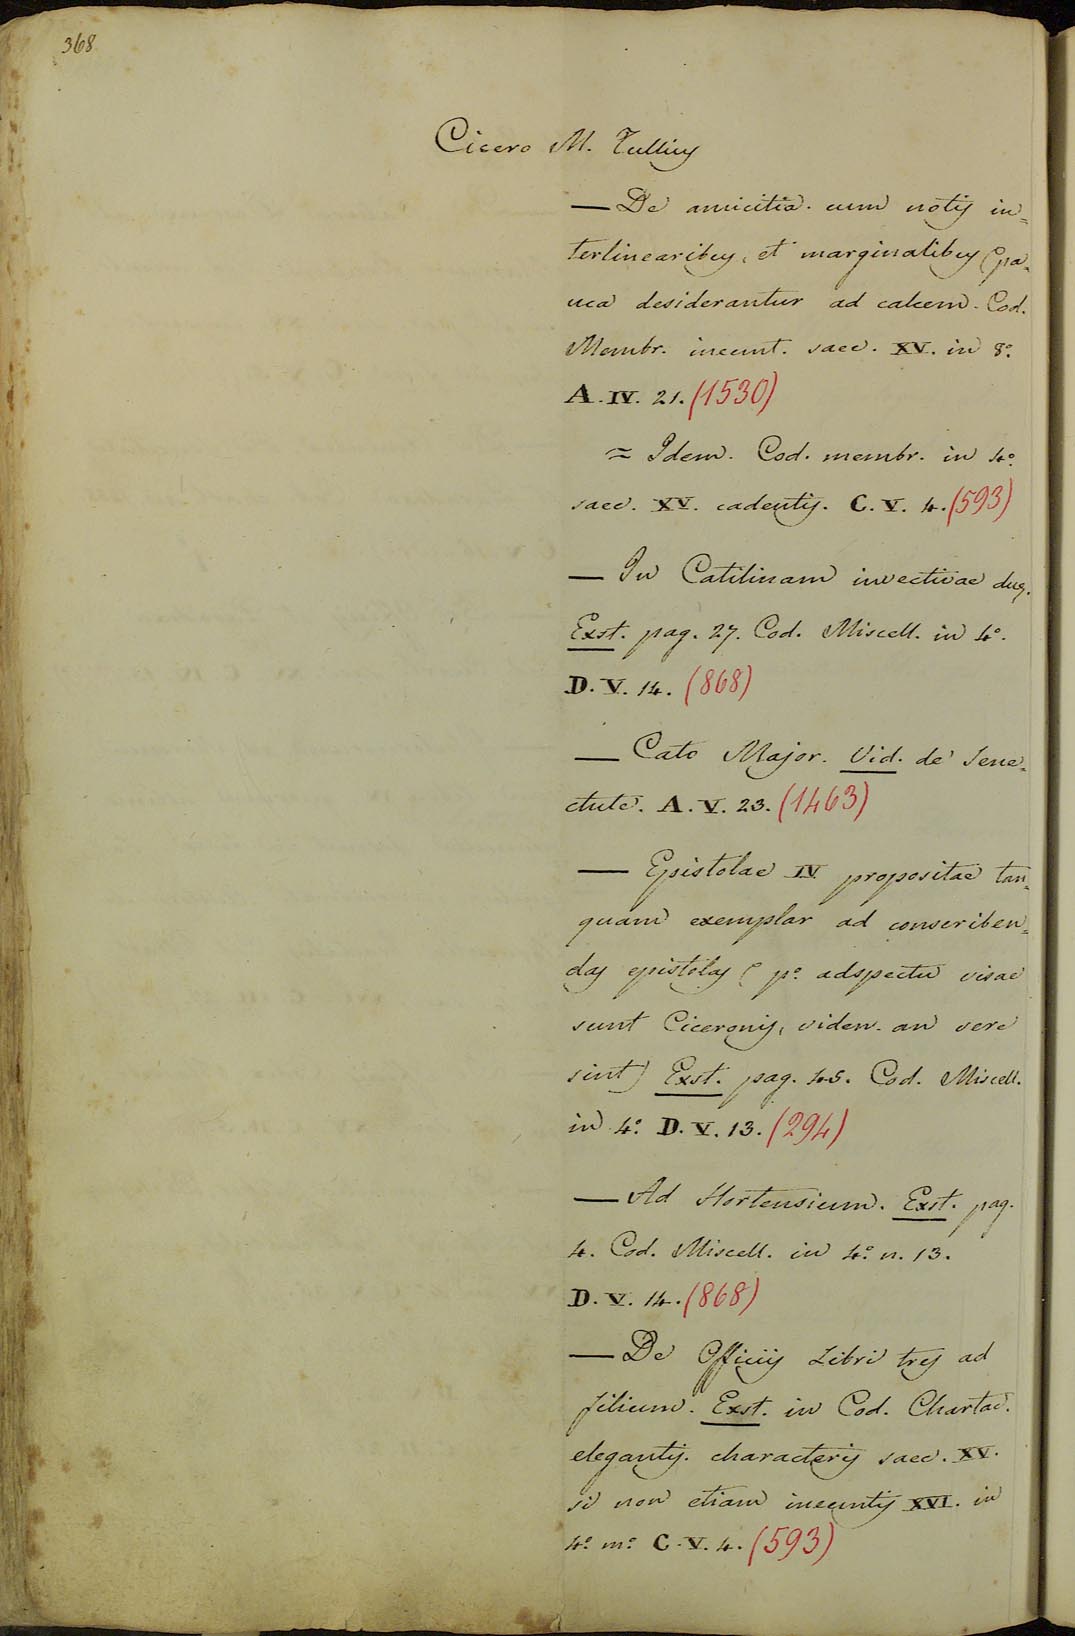 368
Cicero M. Tullius
— De amicitia. cum notis in=
terlinearibus, et marginalibus (pa=
uca desiderantur ad calcem. Cod.
Membr. ineunt. saec. XV. in 8.°
A. IV. 21. (1530)
= Idem. Cod. membr. in 4.°
saec. XV. cadentis. C. V. 4. (593)
— In Catilinam invectivae duae.
Exst. pag. 27. Cod. Miscell. in 4.°
D. V. 14. (868)
— Cato Major. Vid. de Sene=
ctute. A. V. 23. (1463)
— Epistolae IV propositae tan=
quam exemplar ad conscriben=
das epistolas ( p.° adspectu visae
sunt Ciceronis, viden. an vere
sint) Exst. pag. 45. Cod. Miscell.
in 4.° D. V. 13. (294)
— Ad Hortensium. Exst. pag.
4. Cod. Miscell. in 4.° n. 13.
D. V. 14. (868)
— De Officiis Libri tres ad
filium. Exst. in Cod. Chartac.
elegantis characteris saec. XV.
si non etiam ineuntis XVI. in
4.° m.° C. V. 4. (593)